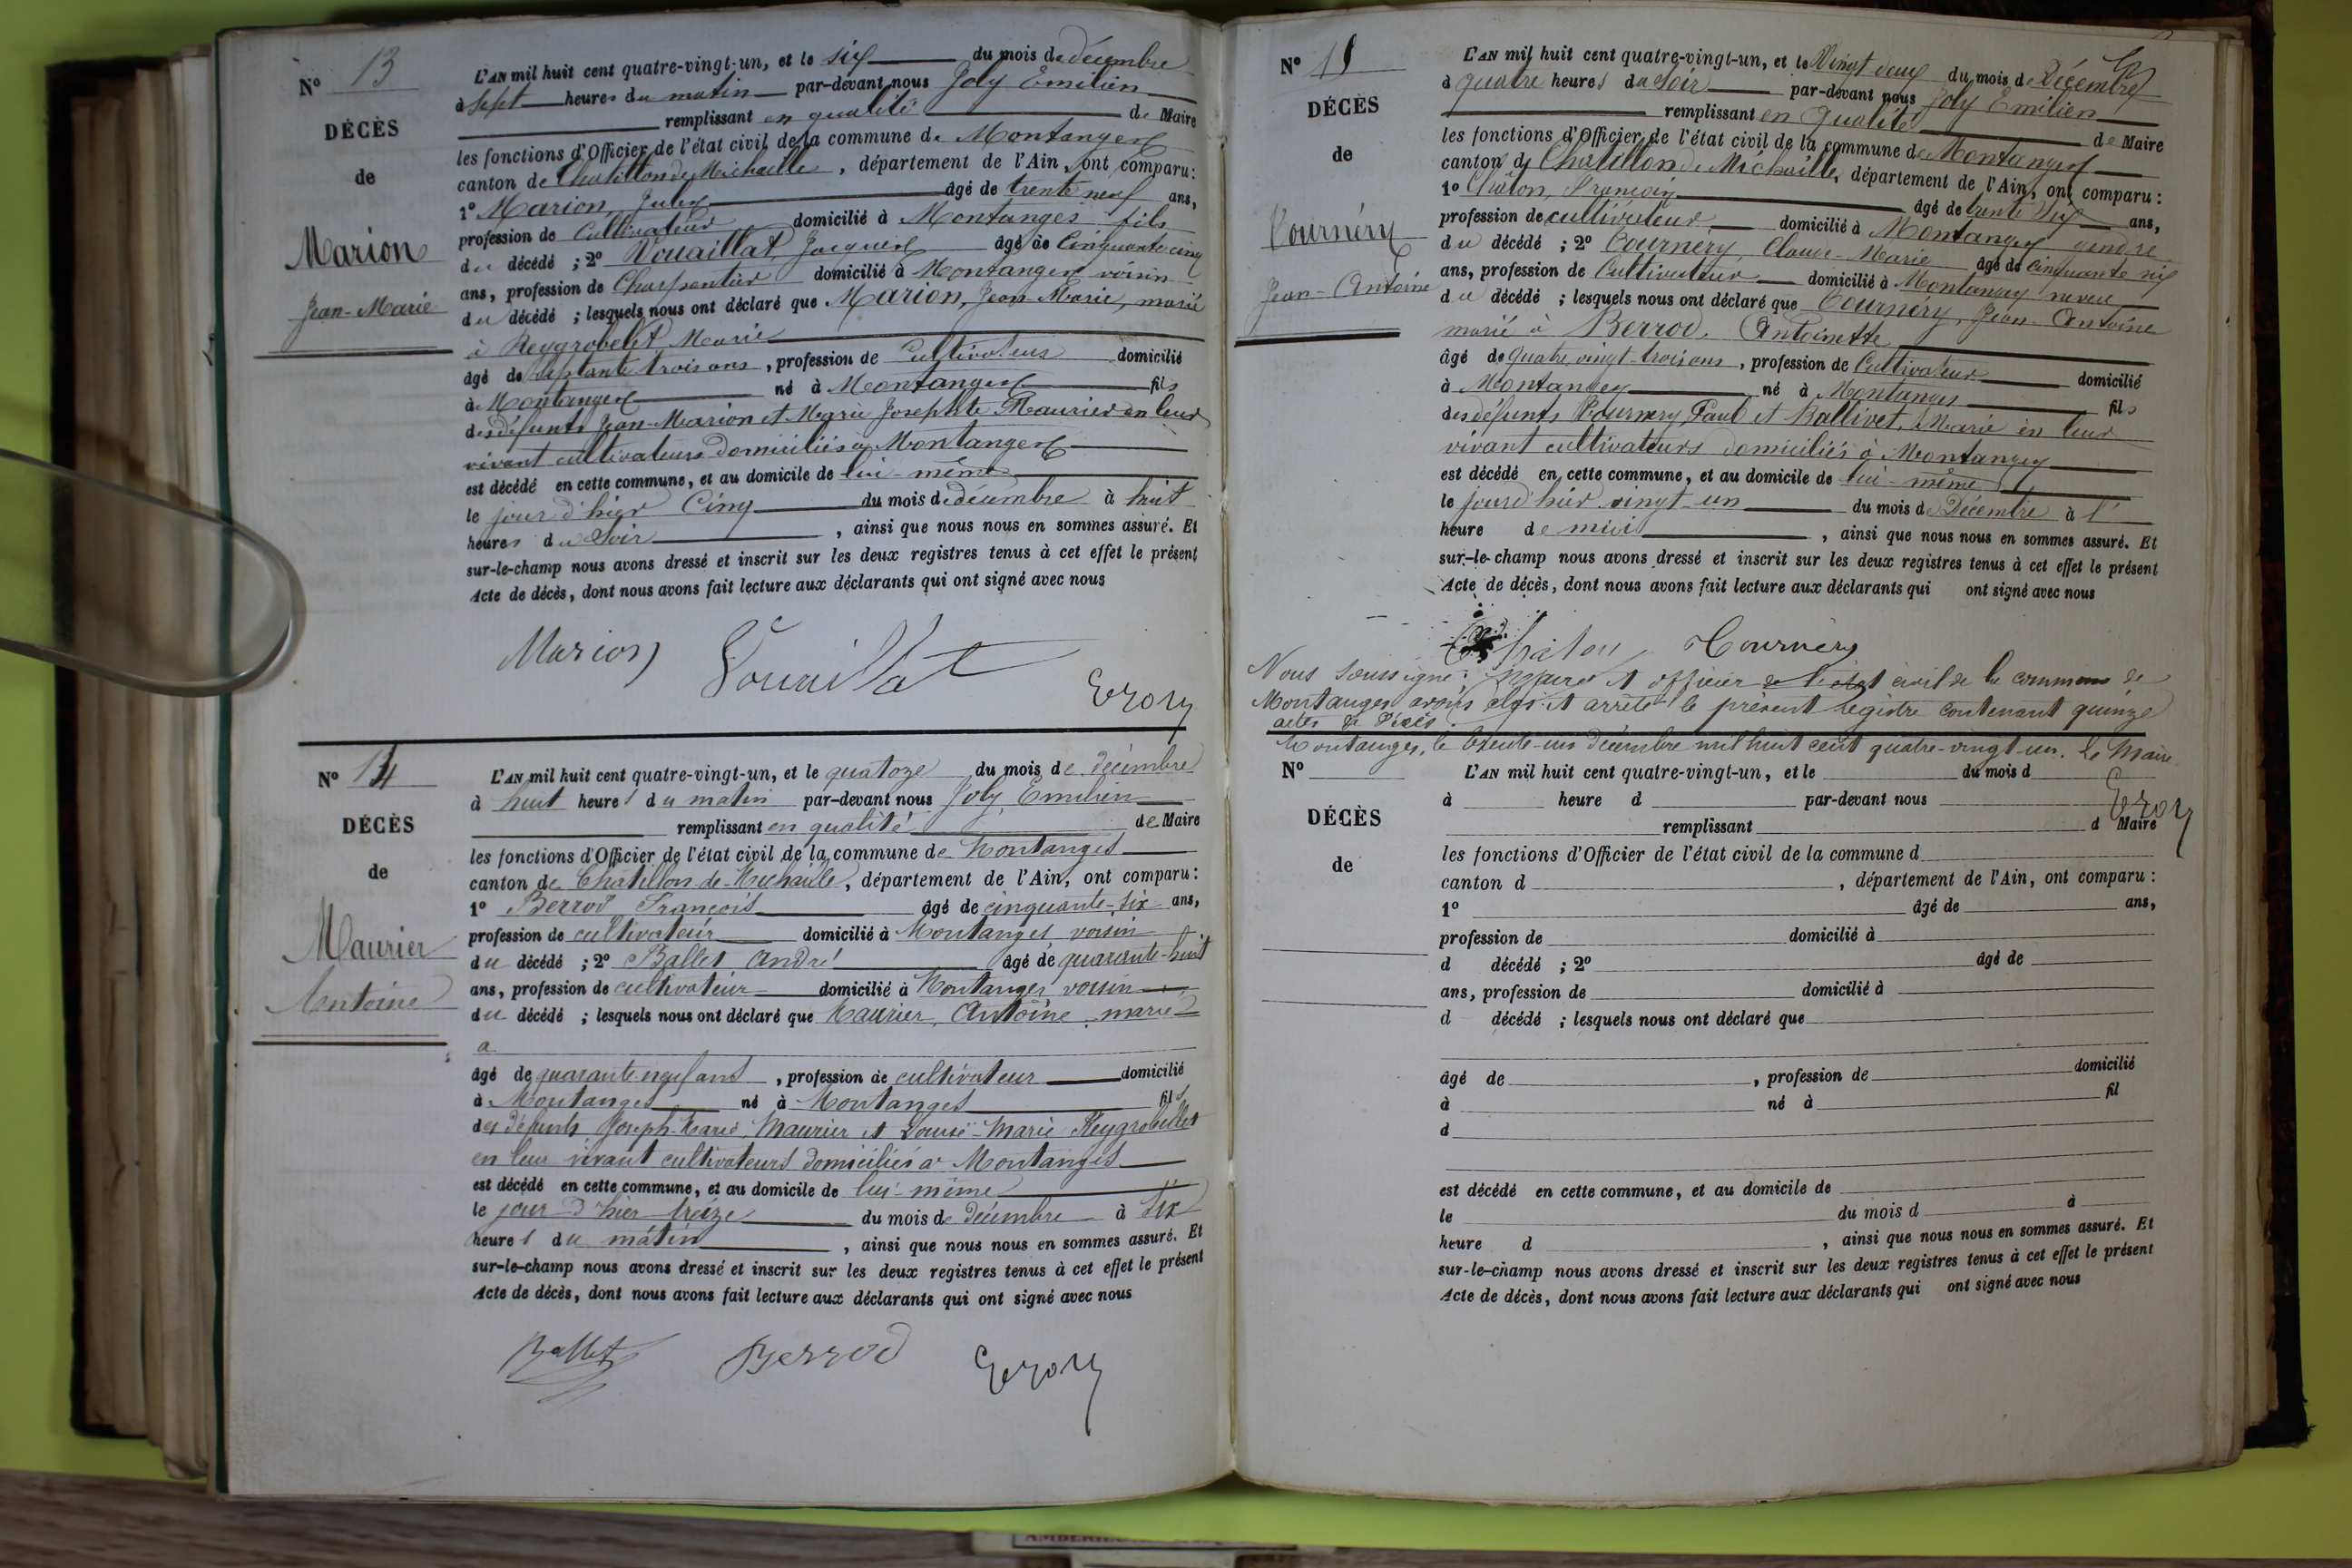 N° 13
DÉCÈS
de
Marion
Jean-Marie
L'AN mil huit cent quatre-vingt-un, et le six du mois de décembre
à sept heures du matin par-devant nous Joly Emilien
remplissant en qualité de Maire
les fonctions d'Officier de l'état civil de la commune de Montanges
canton de Chatillon de Michaille, département de l'Ain, ont comparu :
1° Marion, Jules âgé de trente neuf ans,
profession de Cultivateur domicilié à Montanges fils
du décédé ; 2° Vouaillat, Jacques âgé de Cinquante-cinq
ans, profession de Charpentier domicilié à Montanges voisin
du décédé ; lesquels nous ont déclaré que Marion, Jean-Marie, marié
à Reygrobelet Marie
âgé de septante trois ans, profession de Cultivateur domicilié
à Montanges né à Montanges fils
des défunts Jean-Marion et Marie Josephte Maurier en leur
vivant cultivateurs domiciliés à Montanges
est décédé en cette commune, et au domicile de lui-même
le jour d'hier Cinq du mois de décembre à huit
heures du Soir, ainsi que nous nous en sommes assuré. Et
sur-le-champ nous avons dressé et inscrit sur les deux registres tenus à cet effet le présent
Acte de décès, dont nous avons fait lecture aux déclarants qui ont signé avec nous
Marion Vouaillat
N° 14
DÉCÈS
de
Maurier
Antoine
L'AN mil huit cent quatre-vingt-un, et le quatoze du mois de décembre
à huit heures du matin par-devant nous Joly Emilien
remplissant en qualité de Maire
les fonctions d'Officier de l'état civil de la commune de Montanges
canton de Chatillon de Michaille, département de l'Ain, ont comparu :
1° Berrod François âgé de cinquante-six ans,
profession de cultivateur domicilié à Montanges voisin
du décédé ; 2° Ballet André âgé de quarante-huit
ans, profession de cultivateur domicilié à Montanges voisin
du décédé ; lesquels nous ont déclaré que Maurier, Antoine, marié
a
âgé de quarante-neuf ans, profession de cultivateur domicilié
à Montanges né à Montanges fils
des défunts Joseph-Marie Maurier et Louise-Marie Reygrobellet
en leur vivant cultivateurs domiciliés à Montanges
est décédé en cette commune, et au domicile de lui-même
le jour d'hier treize du mois de décembre à six
heures du matin, ainsi que nous nous en sommes assuré. Et
sur-le-champ nous avons dressé et inscrit sur les deux registres tenus à cet effet le présent
Acte de décès, dont nous avons fait lecture aux déclarants qui ont signé avec nous
Ballet Berrod
N° 15
DÉCÈS
de
Tournéry
Jean-Antoine
L'AN mil huit cent quatre-vingt-un, et le Vingt deux du mois de Décembre
à quatre heures du soir par-devant nous Joly Emilien
remplissant en Qualité de Maire
les fonctions d'Officier de l'état civil de la commune de Montanges
canton de Chatillon de Michaille, département de l'Ain, ont comparu :
1° Châton, François âgé de trente six ans,
profession de cultivateur domicilié à Montanges gendre
du décédé ; 2° Tournéry, Claude-Marie âgé de cinquante six
ans, profession de Cultivateur domicilié à Montanges neveu
du décédé ; lesquels nous ont déclaré que Tournéry, Jean-Antoine
marié à Berrod, Antoinette
âgé de quatre vingt-trois ans, profession de Cultivateur domicilié
à Montanges né à Montanges fils
des défunts Tournery Paul et Ballivet, Marie en leur
vivant cultivateurs domiciliés à Montanges
est décédé en cette commune, et au domicile de lui-même
le jour d'hier vingt-un du mois de Décembre à l'
heure de midi, ainsi que nous nous en sommes assuré. Et
sur-le-champ nous avons dressé et inscrit sur les deux registres tenus à cet effet le présent
Acte de décès, dont nous avons fait lecture aux déclarants qui ont signé avec nous
Châton Tournery
Nous soussigné, maire et officier de l'état civil de la commune de
Montanges avons clos et arrêté le présent registre contenant quinze
actes de décès.
Montanges, le trente-un décembre mil huit cent quatre-vingt-un. Le Maire
N°
DÉCÈS
de
L'AN mil huit cent quatre-vingt-un, et le du mois d
à heure d par-devant nous
remplissant d Maire
les fonctions d'Officier de l'état civil de la commune d
canton d , département de l'Ain, ont comparu :
1° âgé de ans,
profession de domicilié à
d décédé ; 2° âgé de
ans, profession de domicilié à
d décédé ; lesquels nous ont déclaré que
âgé de , profession de domicilié
à né à fil
d
est décédé en cette commune, et au domicile de
le du mois d à
heure d , ainsi que nous nous en sommes assuré. Et
sur-le-champ nous avons dressé et inscrit sur les deux registres tenus à cet effet le présent
Acte de décès, dont nous avons fait lecture aux déclarants qui ont signé avec nous